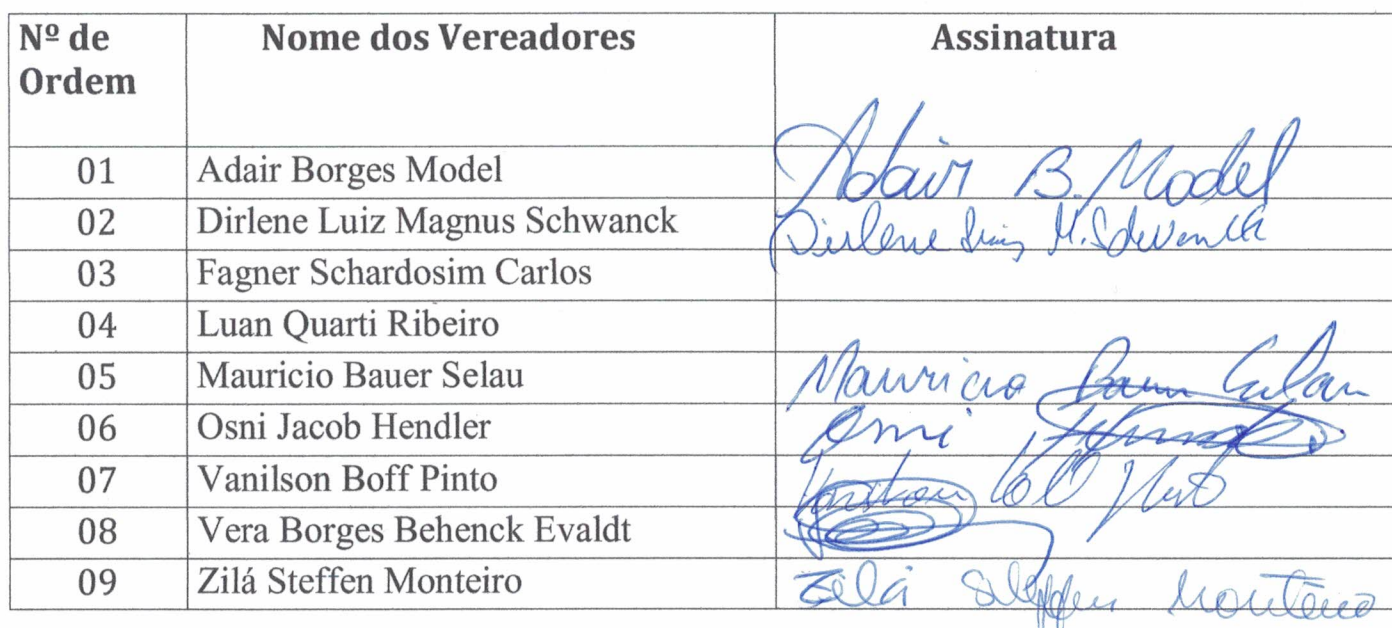 Nº de Ordem Nome dos Vereadores Assinatura
01 Adair Borges Model Adair B. Model
02 Dirlene Luiz Magnus Schwanck Dirlene Luiz M. Schwanck
03 Fagner Schardosim Carlos
04 Luan Quarti Ribeiro
05 Mauricio Bauer Selau Mauricio Bauer Selau
06 Osni Jacob Hendler Osni
07 Vanilson Boff Pinto Vanilson Boff Pinto
08 Vera Borges Behenck Evaldt
09 Zilá Steffen Monteiro Zilá Steffen Monteiro